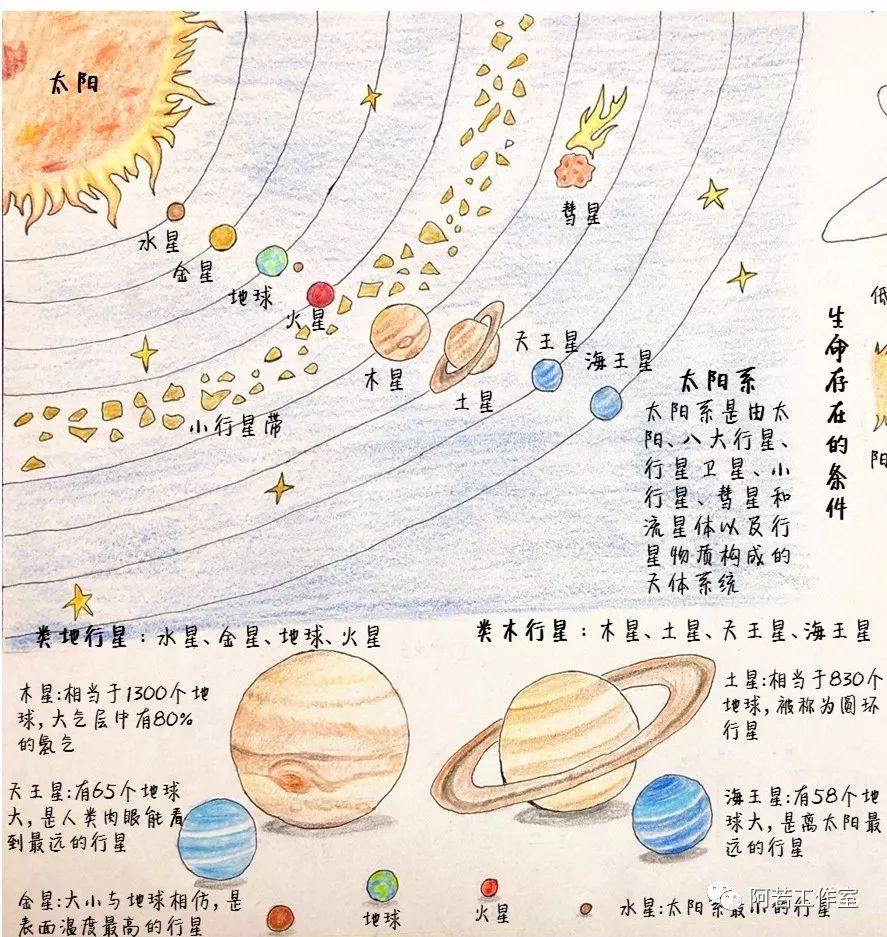 太阳
水星
金星
地球
火星
小行星带
木星
土星
天王星
海王星
彗星
太阳系
太阳系是由太
阳、八大行星、
行星卫星、小
行星、彗星和
流星体以及行
星物质构成的
天体系统
生命存在的条件
低
阳
类地行星:水星、金星、地球、火星
类木行星:木星、土星、天王星、海王星
木星:相当于1300个地
球,大气层中有80%
的氢气
土星:相当于830个
地球,被称为圆环
行星
天王星:有65个地球
大,是人类肉眼能看
到最远的行星
海王星:有58个地
球大,是离太阳最
远的行星
金星:大小与地球相仿,是
表面温度最高的行星
地球
火星
水星:太阳系最小的行星
阿若工作室